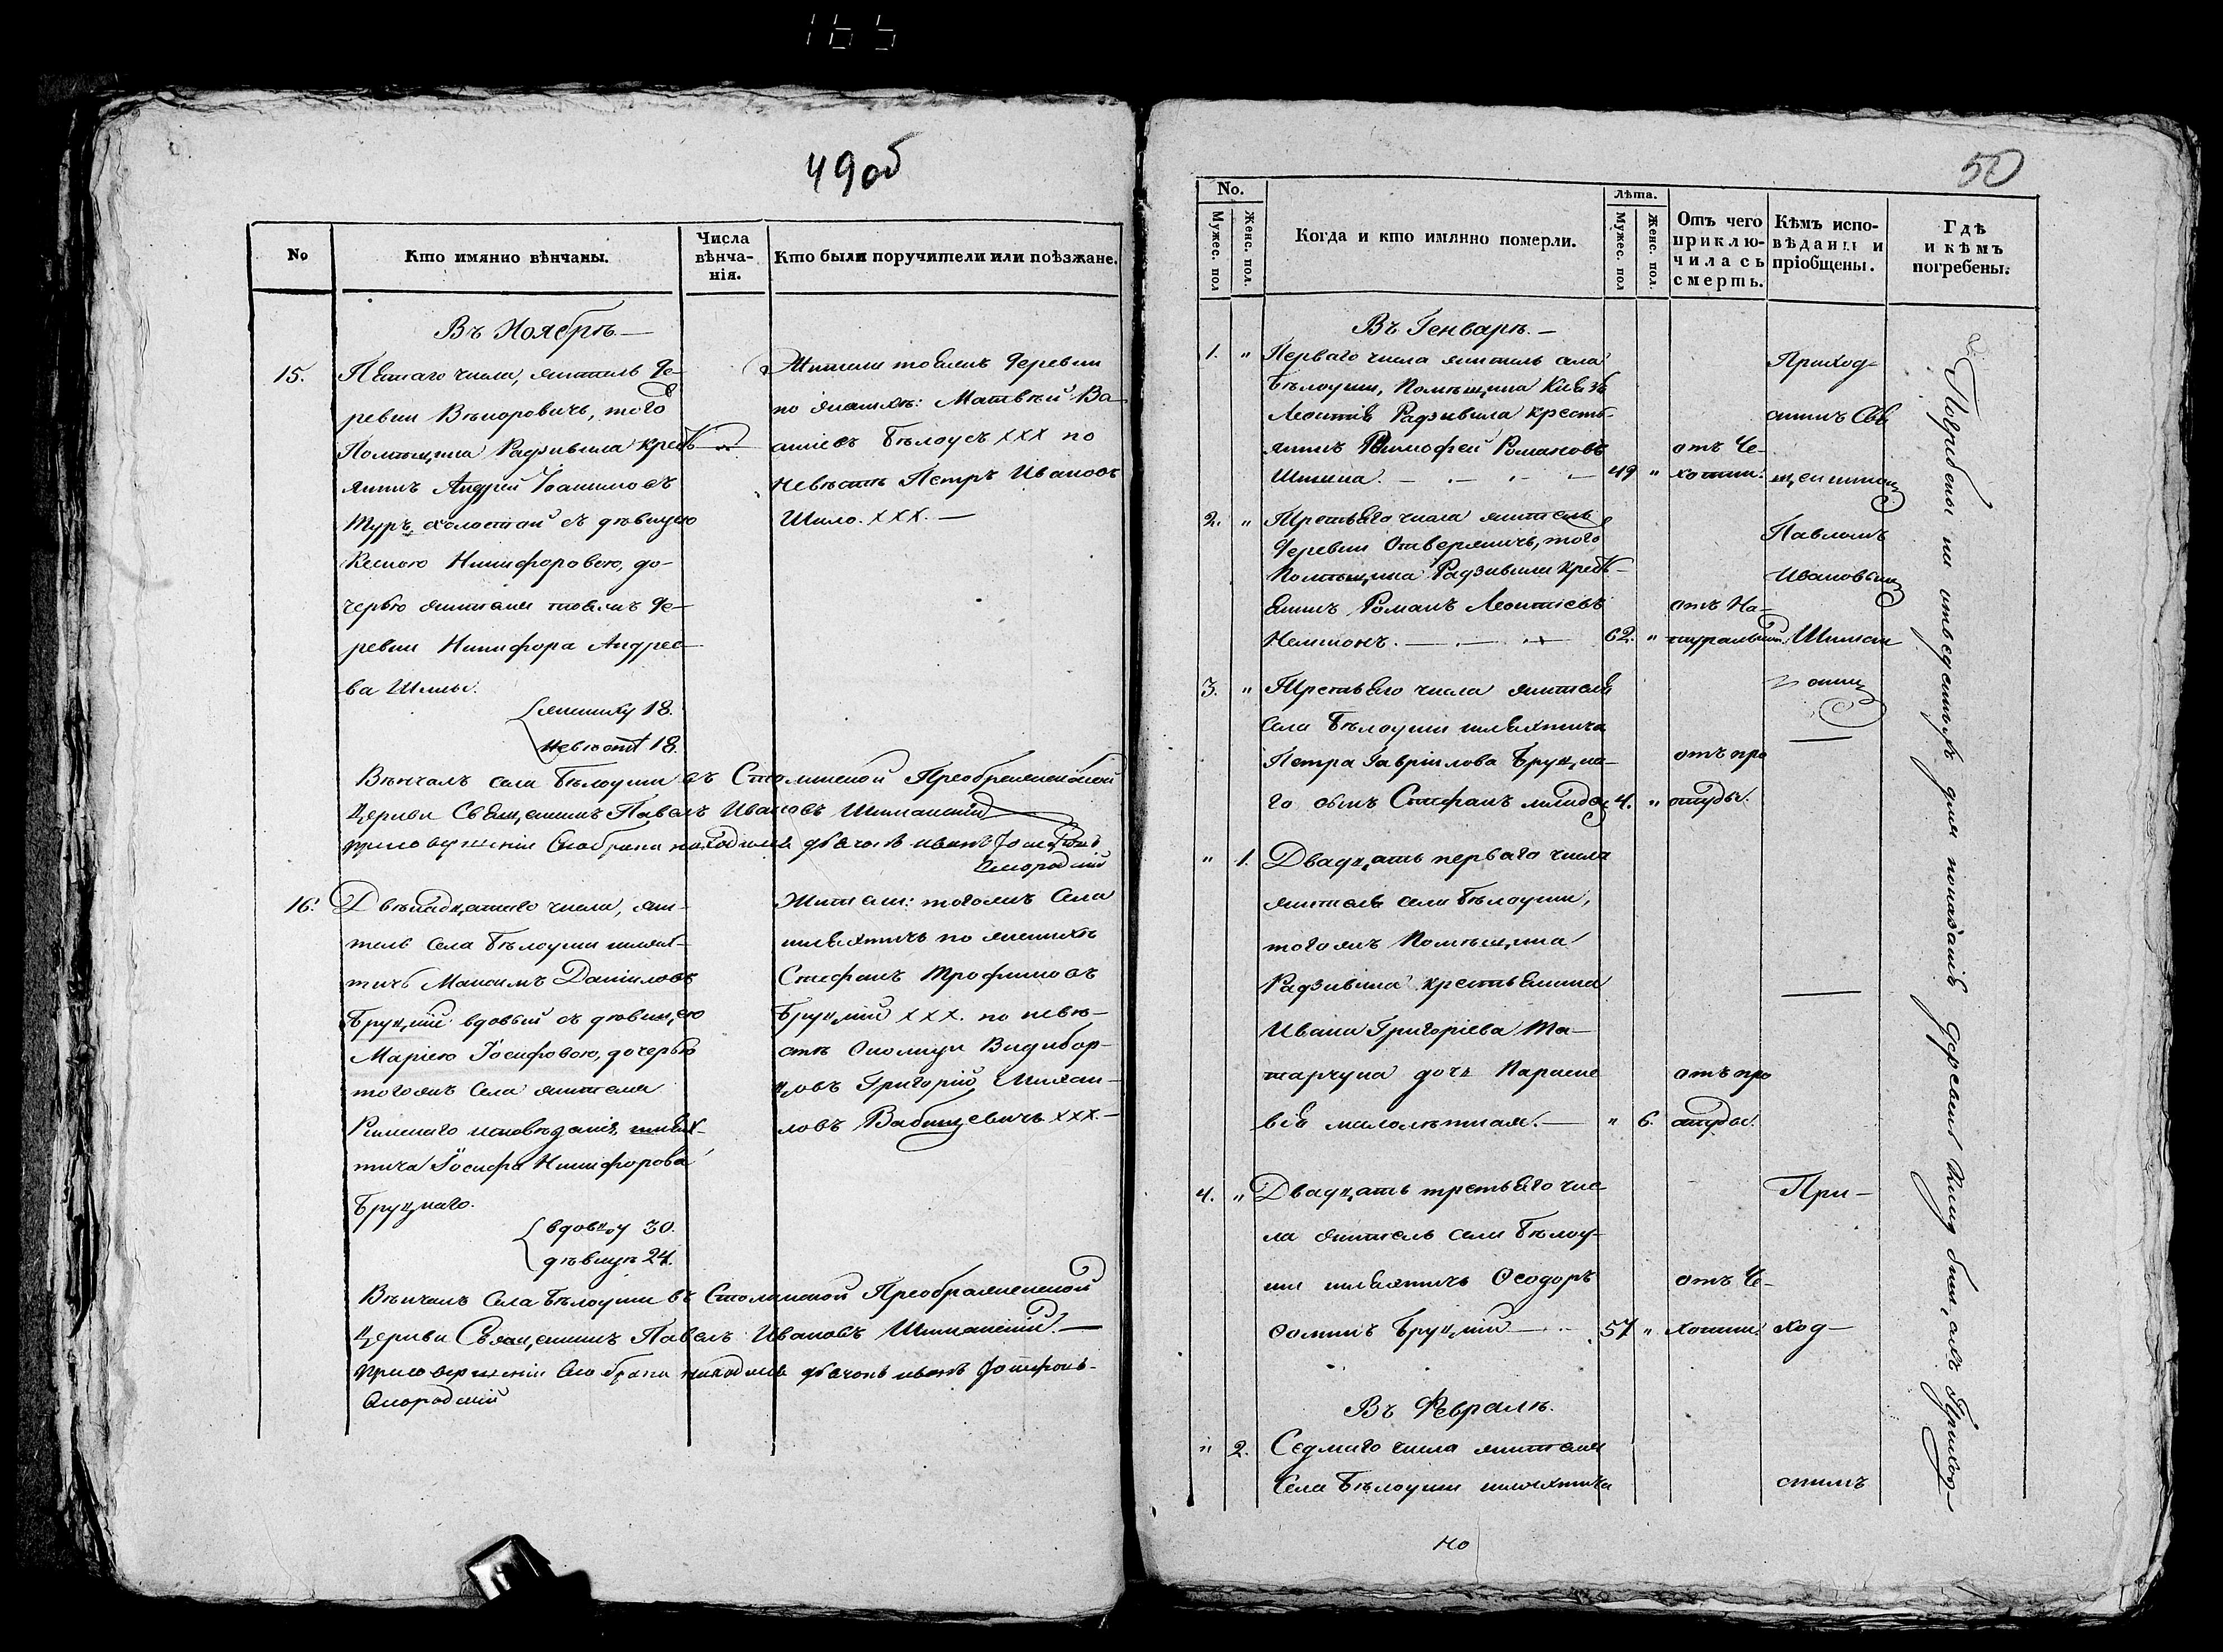 165
49об
No
Кто имянно вѣнчаны.
Числа вѣнча-нія.
Кто были поручители или поѣзжане.
Въ Ноябрѣ.—
15.
Пятаго числа, житель де-
ревни Вѣторовичъ, того
Помѣщика Радзивила кресть-
янинъ Андрей Іоакимовъ
Туръ, холостой съ дѣвицею
Ксенію Никифоровою, до-
черью жителя тоежъ де-
ревни Никифора Андрее-
ва Шилы.
жениху 18.
невѣстѣ 18.
Жители тоежъ деревни
по женихѣ: Матвѣй Ва-
силіевъ Бѣлоусъ ХХХ по
невѣстѣ Петръ Ивановъ
Шило. ХХХ.—
Вѣнчалъ села Бѣлоуши въ Столинской Преображенской
Церкви Священникъ Павелъ Ивановъ Шиманскій
при совершеніи сего брака находился дьячокъ
Смородскій
16.
Двѣнадцатаго числа, жи-
тель села Бѣлоуши шлях-
тичь Максимъ Даніиловъ
Бруцкій вдовый съ дѣвицею
Маріею Іосифовою, дочерью
тогожъ села жителя
Римскаго исповѣданія, шлях-
тича Іосифа Никифорова
Бруцкаго.
вдовцу 30.
дѣвицѣ 24.
Жители: тогожъ села
шляхтичь по женихѣ
Стефанъ Трофимовъ
Бруцкій ХХХ. по невѣ-
стѣ Околицы Видибор-
цовъ Григорій Михаи-
ловъ Вабищевичъ ХХХ.—
Вѣнчалъ села Бѣлоуши въ Столинской Преображенской
Церкви Священникъ Павелъ Ивановъ Шиманскій.—
при совершеніи сего брака находился дьячокъ
Смородскій
50
No.
Мужес. пол
Женс. пол.
Когда и кто имянно померли.
Лѣта.
Мужес. пол
Женс. пол.
Отъ чего приклю-чилась смерть.
Кѣмъ испо-вѣданы и пріобщены.
Гдѣ и кѣмъ погребены.
Въ Генварѣ.—
1. "
Перваго числа житель села
Бѣлоуши, Помѣщика Князя
Леонтія Радзивила кресть-
янинъ Тимофей Романовъ
Шикина. 49 "
отъ Че-
хотки.
2. "
Третьяго числа житель
деревни Отвержичь, того
Помѣщика Радзивила кресть-
янинъ Романъ Леонтіевъ
62. "
отъ На-
туральной
3. "
Третьяго числа жителя
села Бѣлоуши шляхтича
Петра Гавріилова Бруцка-
го сынъ Стефанъ младен. 4. "
отъ про
студы.
" 1.
Двадцать перваго числа
жителя села Бѣлоуши,
тогожъ Помѣщика
Радзивила крестьянина
Ивана Григоріева Та-
тарчука дочь Параске
вія малолѣтная.— " 6.
отъ про
студы.
4. "
Двадцать третьяго чис
ла житель села Бѣлоу-
ши шляхтичь Ѳеодоръ
Ѳоминъ Бруцкій 57 "
отъ Че-
хотки.
Въ Февралѣ.
" 2.
Седмаго числа жителя
Села Бѣлоуши шляхтича
Приход-
скимъ Свя
щенником
Павломъ
Ивановым
Шиман
скимъ
При-
ход-
скимъ
Погребены на отведенныхъ для
Приход-
но